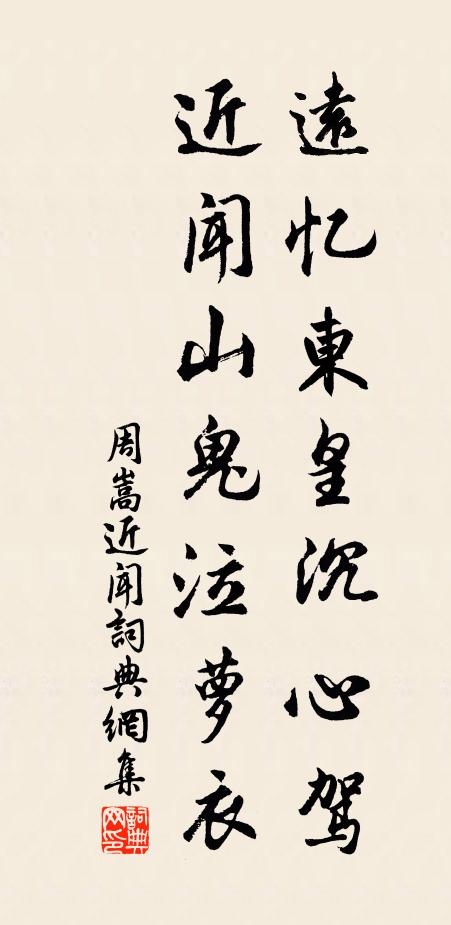 遠忆東皇沉心駕
近闻山鬼泣夢衣
周嵩近闻詞典網集
詞典網印